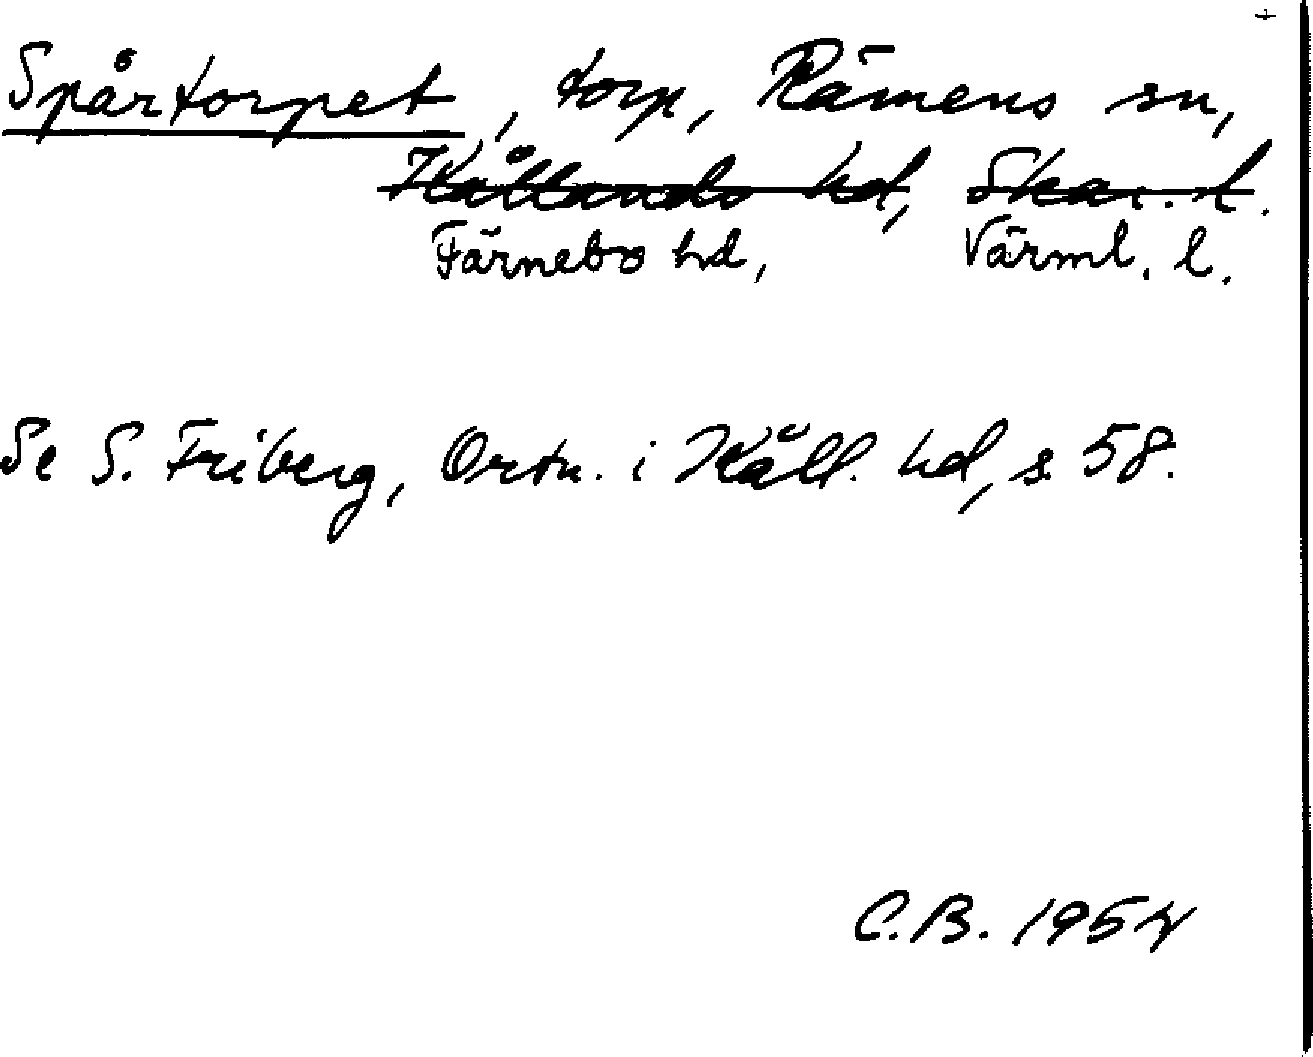 Spårtorpet, torp, Rämens sn,
Kållands hd, Skar. l.
Färnebo hd, Värml. l.
Se S. Friberg, Ortn. i Kåll. hd, s 58.
C.B. 1954